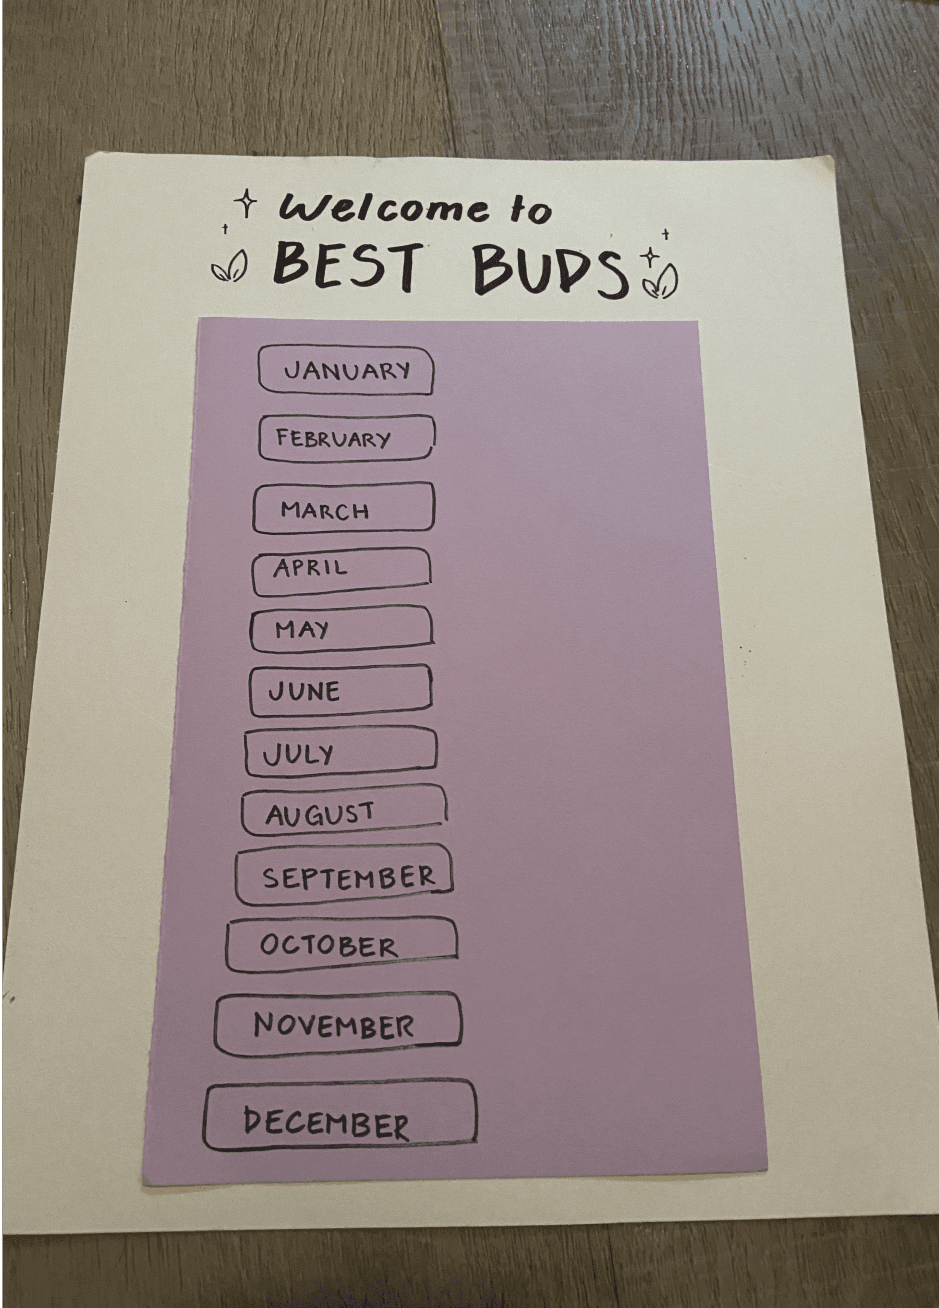 Welcome to
BEST BUDS
JANUARY
FEBRUARY
MARCH
APRIL
MAY
JUNE
JULY
AUGUST
SEPTEMBER
OCTOBER
NOVEMBER
DECEMBER